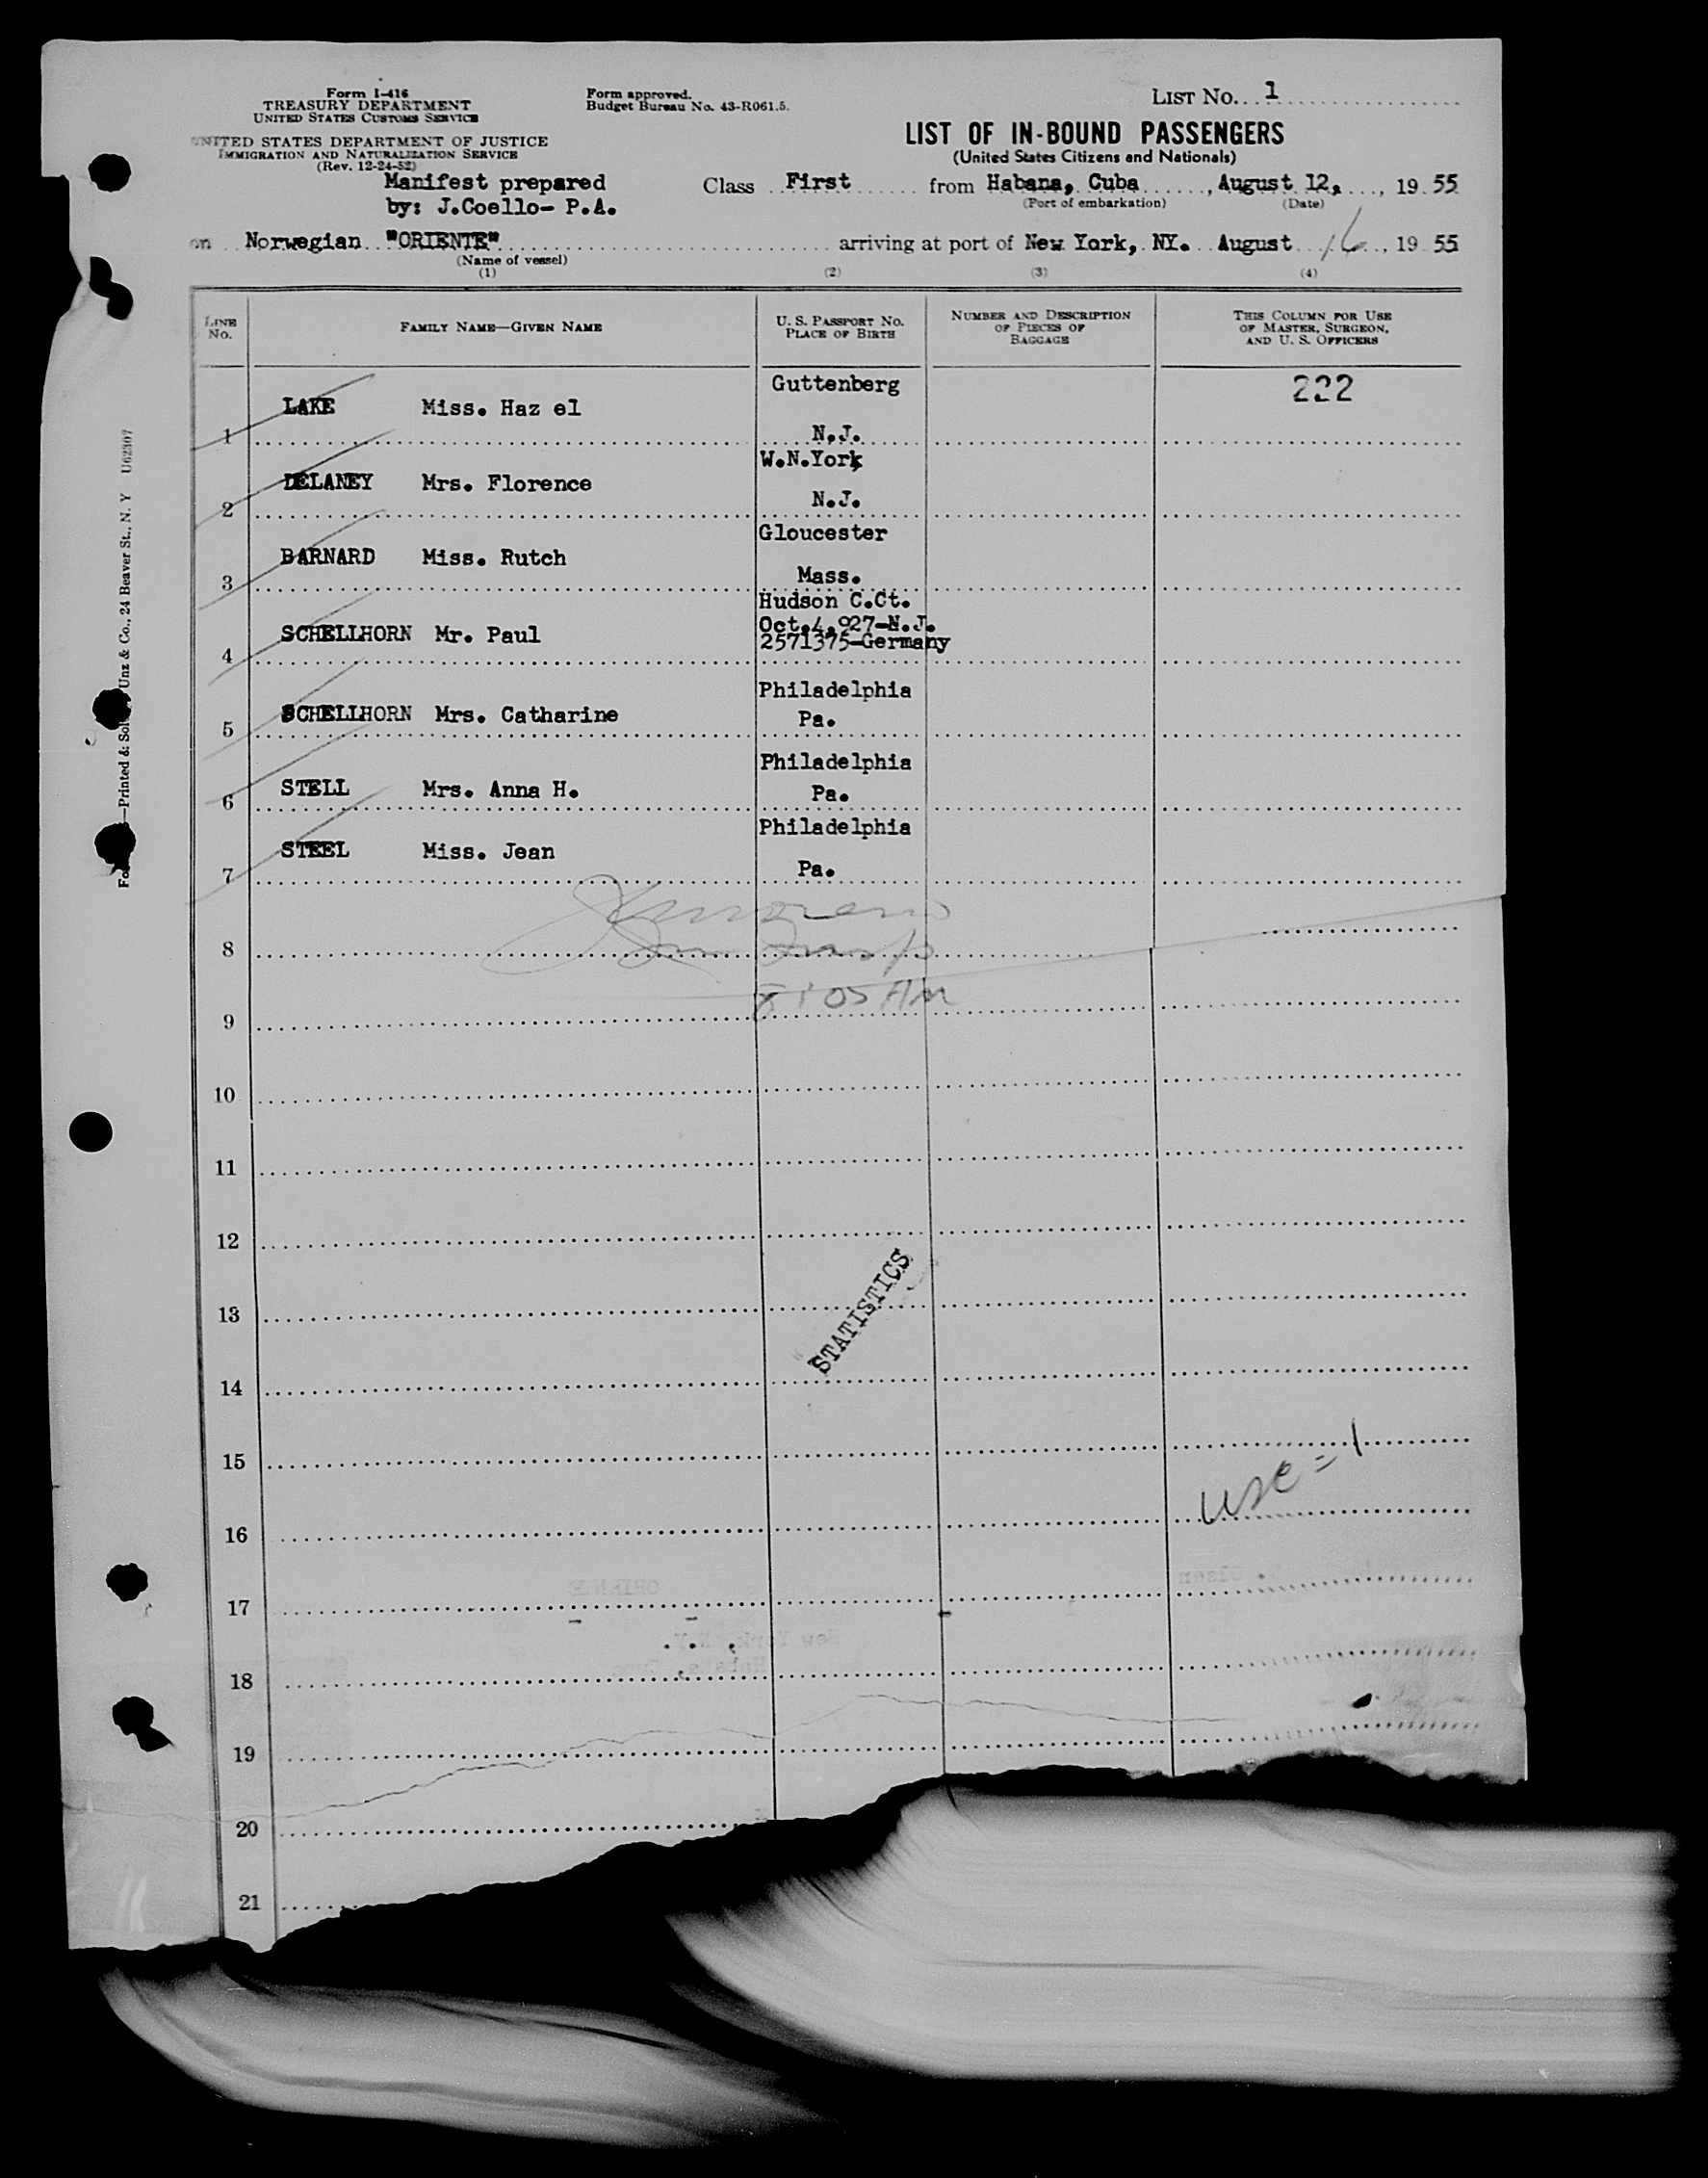 Form I-416
TREASURY DEPARTMENT
UNITED STATES CUSTOMS SERVICE
UNITED STATES DEPARTMENT OF JUSTICE
IMMIGRATION AND NATURALIZATION SERVICE
(Rev. 12-24-52)
Form approved.
Budget Bureau No. 43-R061.5.
LIST No. 1
LIST OF IN-BOUND PASSENGERS
(United States Citizens and Nationals)
Manifest prepared
by: J.Coello- P.A.
Class First from Habana, Cuba, August 12, 19 55
(Port of embarkation) (Date)
on Norwegian "ORIENTE" arriving at port of New York, NY. August 16, 19 55
(Name of vessel)
(1) (2) (3) (4)
LINE No.
FAMILY NAME—GIVEN NAME
U. S. PASSPORT No.
PLACE OF BIRTH
NUMBER AND DESCRIPTION
OF PIECES OF
BAGGAGE
THIS COLUMN FOR USE
OF MASTER, SURGEON,
AND U. S. OFFICERS
222
1 LAKE Miss. Haz el Guttenberg
N.J.
2 DELANEY Mrs. Florence W.N.York
N.J.
3 BARNARD Miss. Rutch Gloucester
Mass.
4 SCHELLHORN Mr. Paul Hudson C.Ct.
Oct.4,927-N.J.
2571375-Germany
5 SCHELLHORN Mrs. Catharine Philadelphia
Pa.
6 STELL Mrs. Anna H. Philadelphia
Pa.
7 STEEL Miss. Jean Philadelphia
Pa.
8
8:05 AM
9
10
11
12
13
STATISTICS
14
15
use = 1
16
17
18
19
20
21
—Printed & Sold by Unz & Co., 24 Beaver St., N. Y U62307